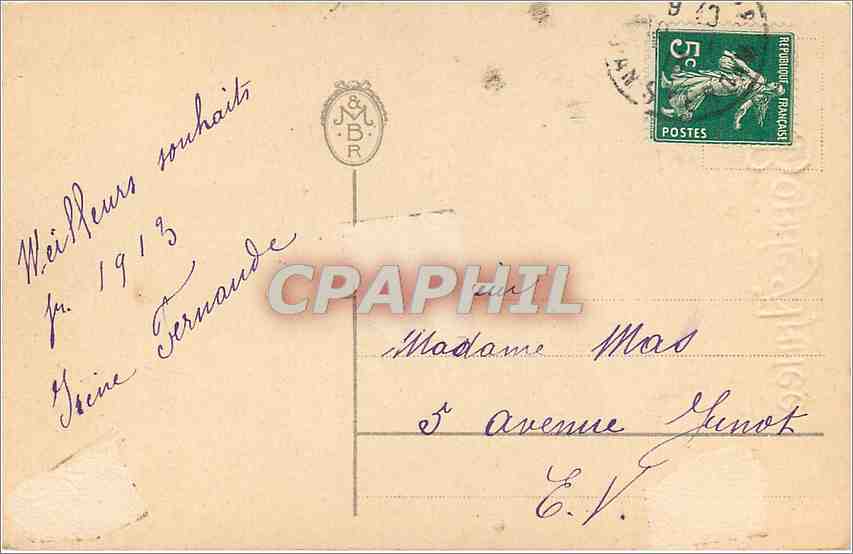 Meilleurs souhaits
pr. 1913
Irène Fernande
& M
B
R
RÉPUBLIQUE FRANÇAISE
5c
POSTES
Bonne Année
CPAPHIL
Madame Mas
5 avenue Junot
E.V.